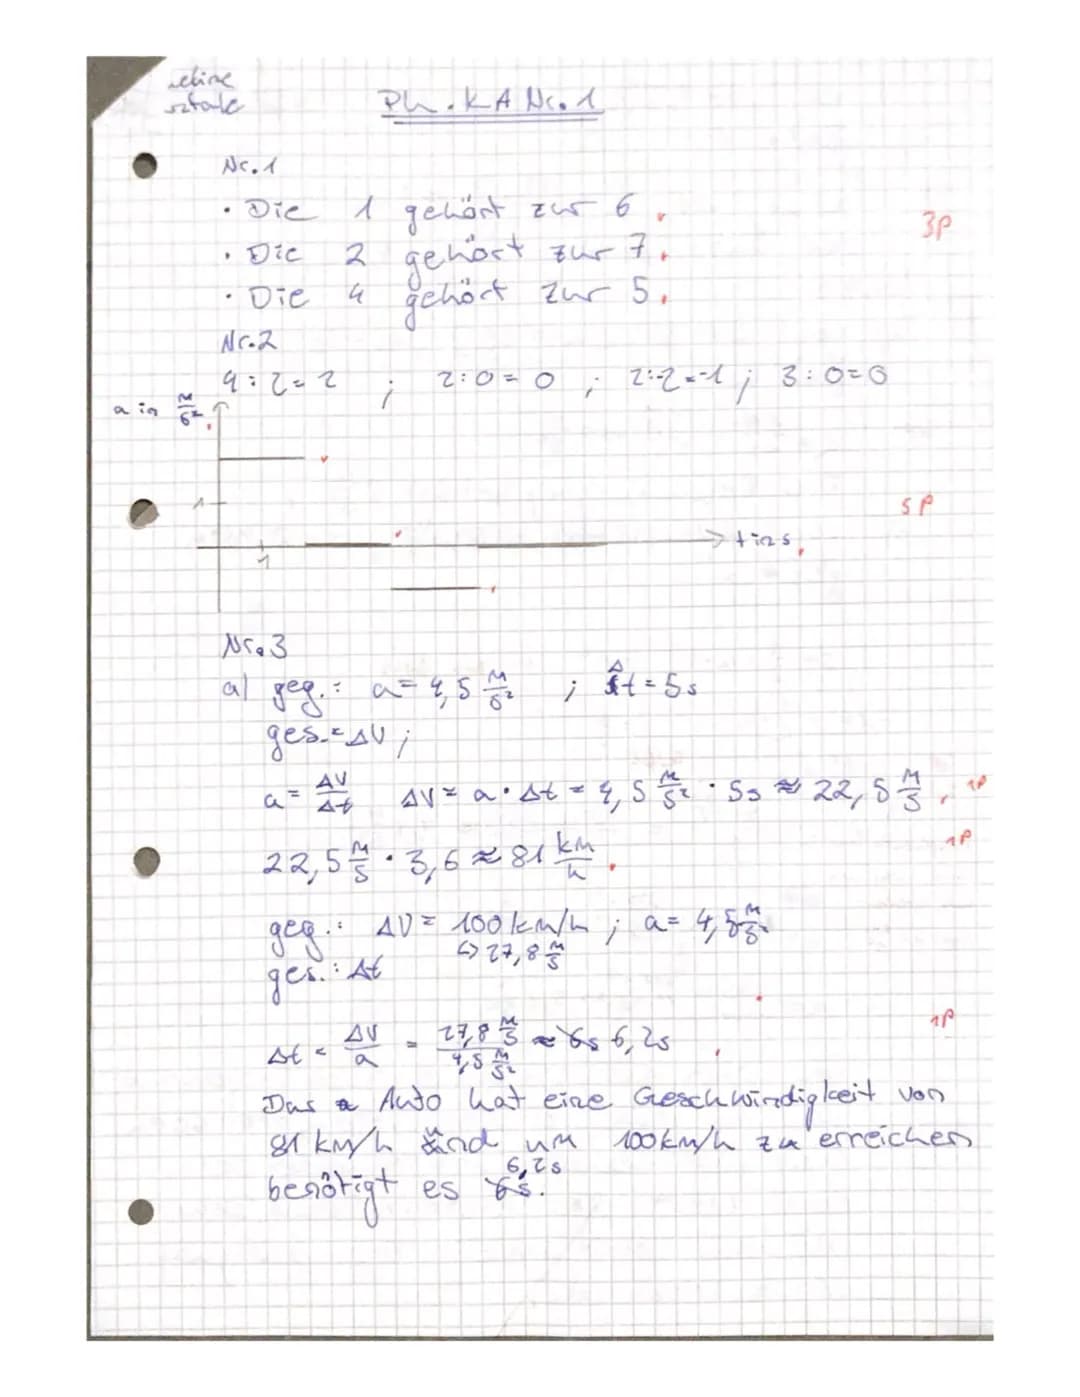 Ph. KA Nr. 1
Nr. 1
• Die 1 gehört zur 6
3P
• Die 2 gehört zur 7
• Die 4 gehört zur 5
Nr. 2
4 : 2 = 2 ; 2:0 = 0 ; 2:-2=-1 ; 3:0=0
a in m/s²
1
5P
t in s
1
Nr. 3
a) geg.: a = 4,5 m/s² ; Δt = 5s
ges.= ΔV ;
a = ΔV/Δt ΔV = a · Δt = 4,5 m/s² · 5s ≈ 22,5 m/s 1P
22,5 m/s · 3,6 ≈ 81 km/h 1P
geg.: ΔV = 100 km/h ; a = 4,5 m/s²
↳ 27,8 m/s
ges.: Δt
Δt = ΔV/a = 27,8 m/s / 4,5 m/s² ≈ 6s 6,2s 1P
Das Auto hat eine Geschwindigkeit von
81 km/h und um 100 km/h zu erreichen
6,2s
benötigt es 6s.